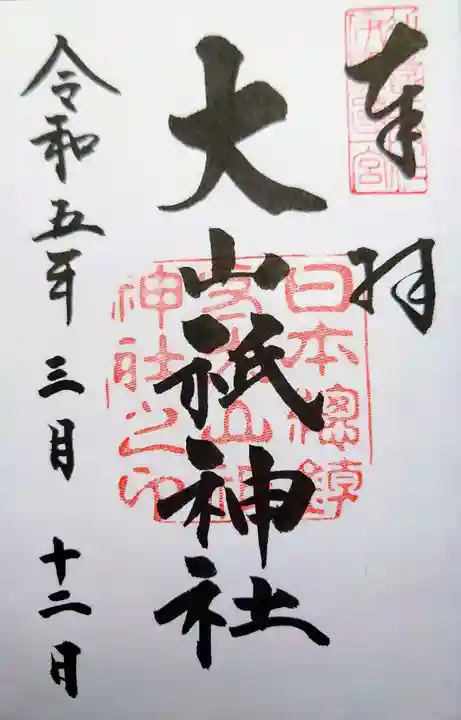 奉拝
大山祇神社
日本總鎮
大山祇
神社之印
令和五年三月十二日